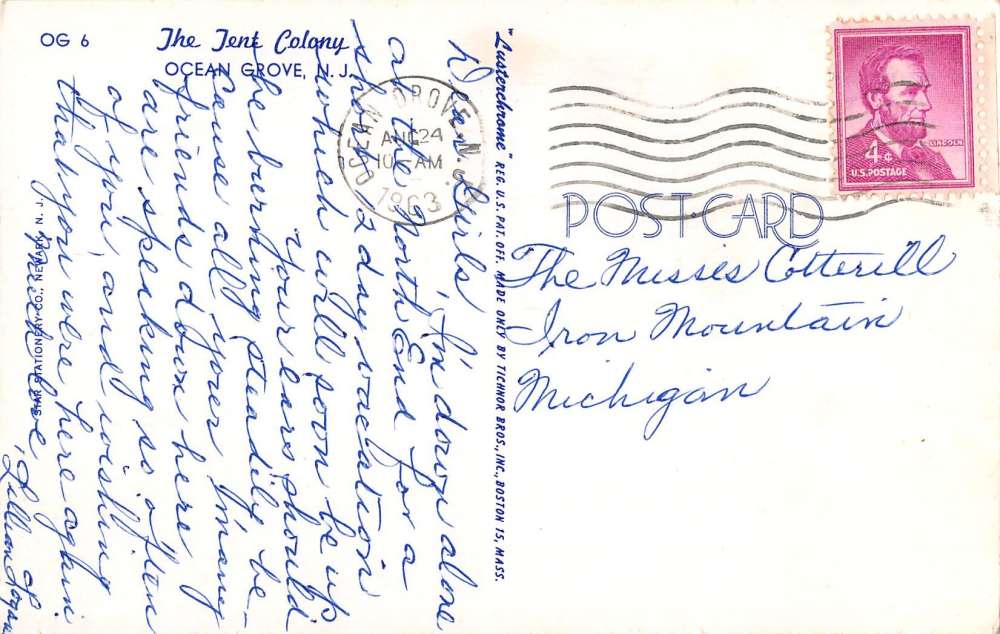 OG 6
The Tent Colony
OCEAN GROVE, N. J.
Dear Girls,
I'm down alone
at the North End for a
short 12 day vacation
which will soon be up
Your ears should
be burning steadily be-
cause all your many
friends down here
are speaking so often
of you, and wishing
that you were here again.
Much love
Lillian Logan
STAR STATIONERY CO., NEWARK, N. J.
"Lusterchrome" REG. U.S. PAT. OFF. MADE ONLY BY TICHNOR BROS., INC., BOSTON 15, MASS.
OCEAN GROVE, N.J.
AUG 24
10 -AM
1963
LINCOLN
4¢
U.S. POSTAGE
POST CARD
The Misses Cotterill
Iron Mountain
Michigan